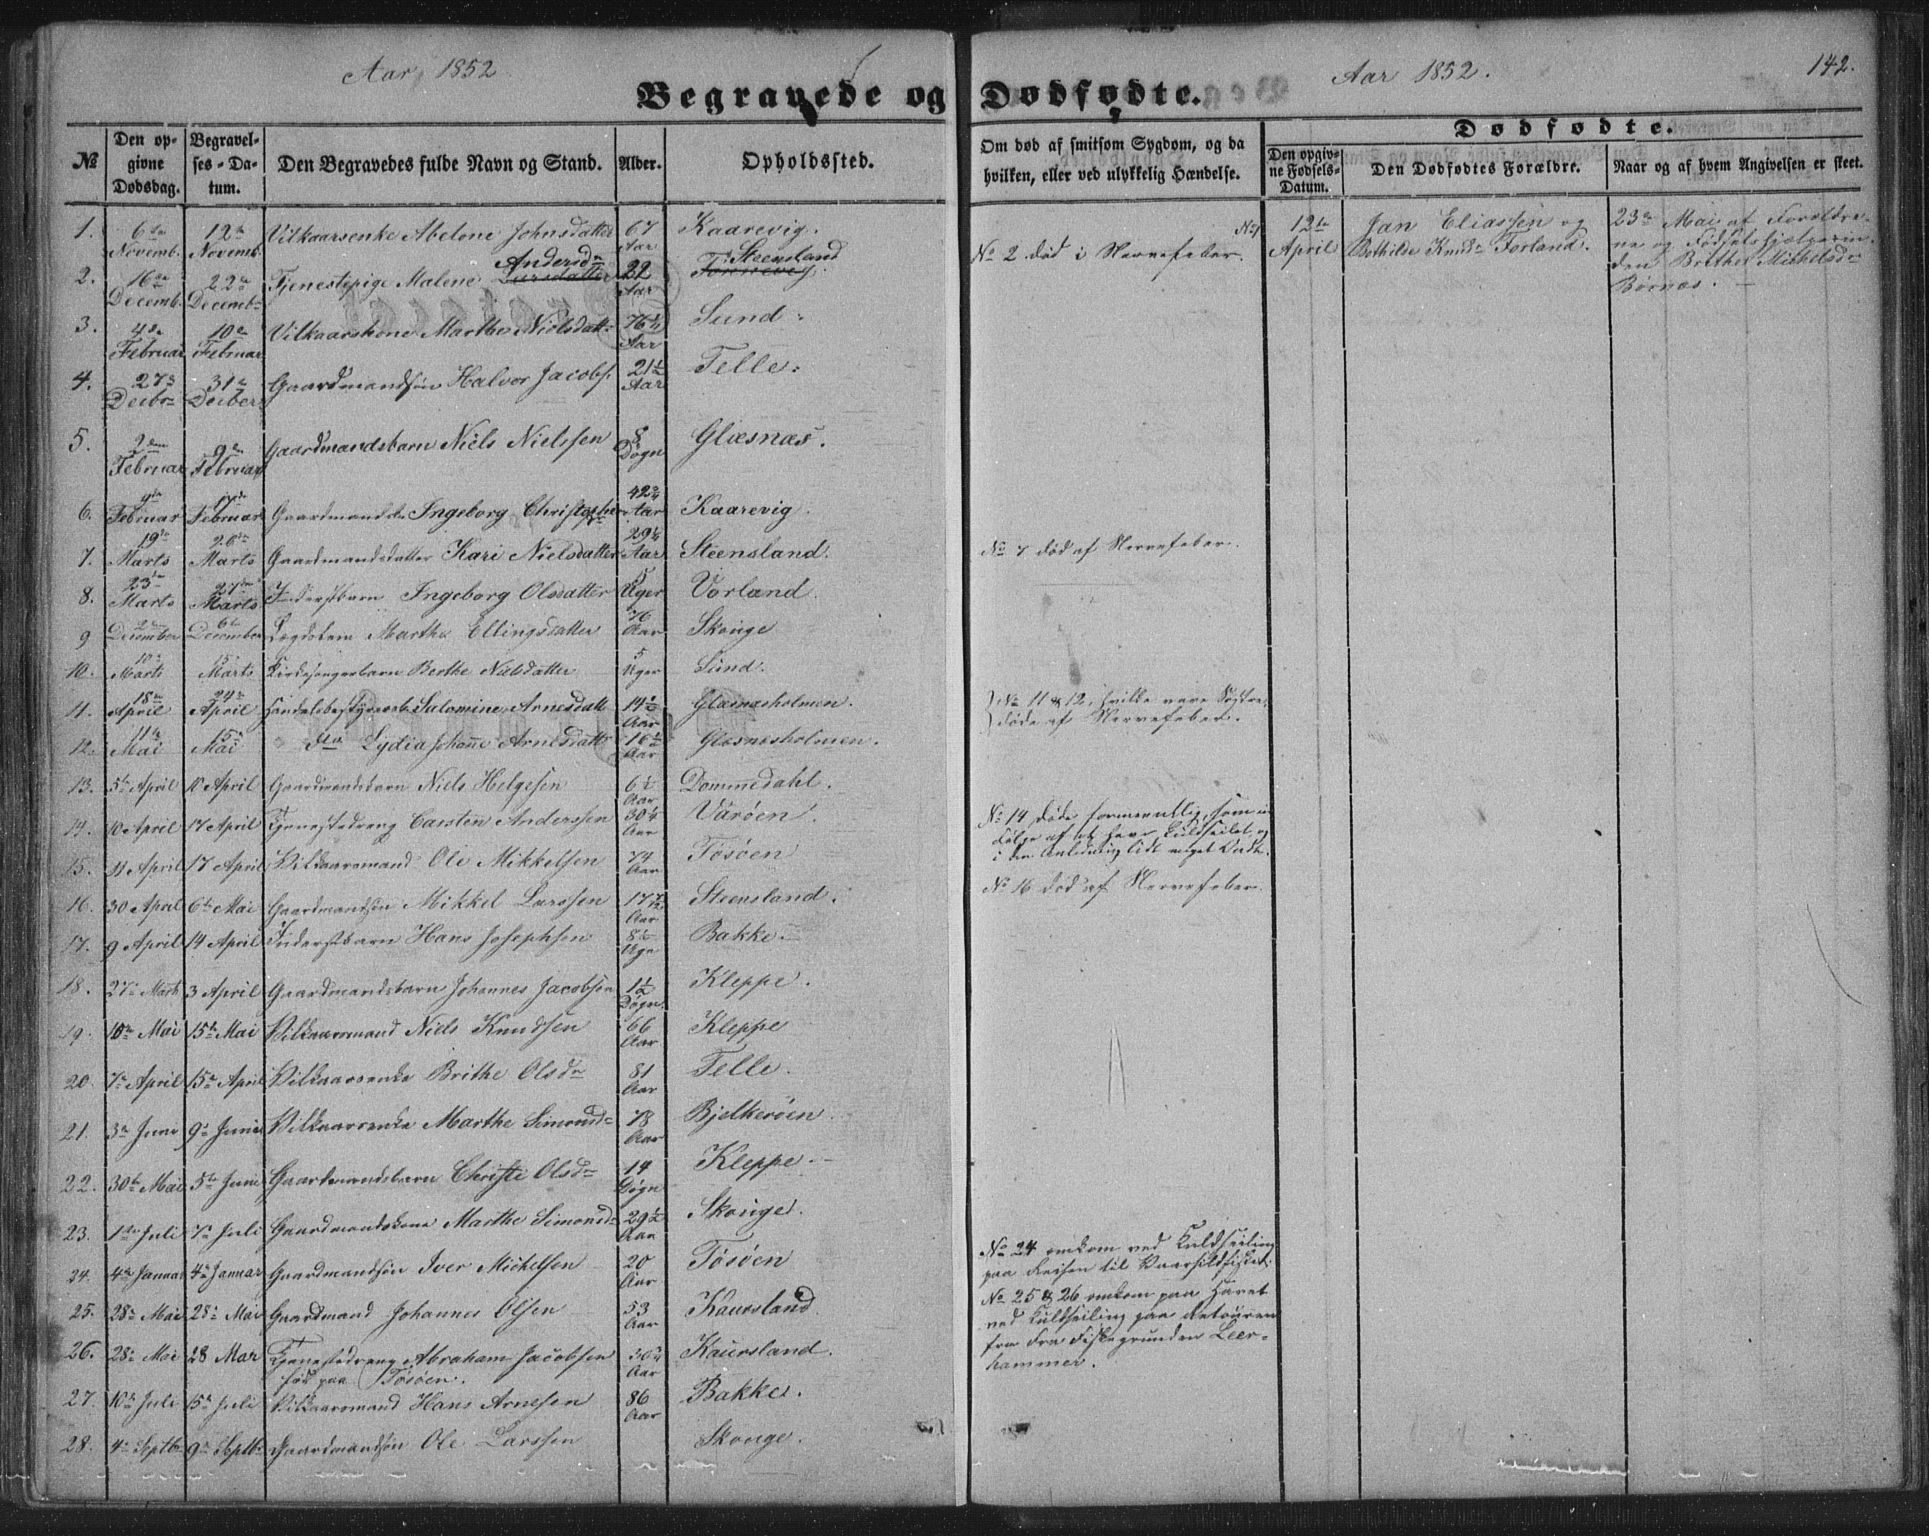 Aar 1852
Aar 1852.
142.
Begravede og Dødfødte.
№
Den opgivne Dødsdag.
Begravelses-Datum.
Den Begravedes fulde Navn og Stand.
Alder.
Opholdssted.
Om død af smitsom Sygdom, og da hvilken, eller ved ulykkelig Hændelse.
Dødfødte.
Den opgivne Fødsels-Datum.
Den Dødfødtes Forældre.
Naar og af hvem Angivelsen er skeet.
1. 6te Novemb. 12te Novemb. Vilkaarsenke Abelone Johnsdatter 67 Aar Kaarevig.
2. 16de Decemb. 22de Decemb. Tjenestepige Malene Larsdatter Andersdr 22 Aar Steensland
3. 4de Februar 10de Februar Vilkaarskone Marthe Nielsdatter 76 Aar Sund.
4. 27de Decbr 31te Decber Gaardmandsøn Halvor Jacobs. 21½ Aar Telle.
5. 2den Februar 9de Februar Gaardmandsbarn Niels Nielssen 8 Døgn Glæsnæs.
6. Februar Februar Gaardmands Ingeborg Christopher 42¾ Aar Kaarevig.
7. 19de Marts 26de Marts Gaardmandsdatter Kari Nielsdatter 29¼ Aar Steensland.
8. 23de Marts 27de Marts Inderstbarn Ingeborg Olsdatter 5 Uger Vorland.
9 2den December 6te December Lægdslem Marthe Ellingsdatter 76 Aar Skouge
10. Marts 15 Marts Kirkesangerbarn Berthe Nielsdatter 5 Uger Sund.
11. 18de April 24de April Handelsbestyrerdtr Salomine Arnesdatt 14 Aar Glæsnæsholmen.
12. 11te Mai 15de Mai dto Lydia Johanne Arnesdatt 16½ Aar Glæsnæsholmen.
13. 5te April 10 April Gaardmandsbarn Niels Helgesen 6½ Aar Dommedahl.
14. 10 April 17 April Tjenestedreng Carsten Anderssen 30¼ Aar Väröen.
15. 11 April 17 April Vilkaarsmand Ole Mikkelsen 74 Aar Tösöen
16. 30 April 6te Mai Gaardmandsøn Mikkel Larssen 17 Aar Steensland.
17. 9 April 14 April Inderstbarn Hans Josephsen 8½ Uge Bakke
18. 27de Marts 3 April Gaardmandsbarn Johannes Jacobsen 1½ Døgn Kleppe.
19. 10de Mai 15de Mai Vilkaarsmand Niels Knudsen 66 Aar Kleppe
20. 7de April 15de April Vilkaarsenke Brithe Olsdr 81 Aar Telle.
21. 3de Juni 9de Junie Vilkaarsenke Marthe Simonsd. 78 Aar Bjelkeröen
22. 30te Mai 5te Juni Gaardmandsbarn Christi Olsdr 14 Døgn Kleppe.
23. 1ste Juli 7de Juli Gaardmandskone Marthe Simonsd. 29½ Aar Skouge.
24. 4de Januar 4de Januar Gaardmandsøn Iver Michelsen 20 Aar Tösöen
25. 28de Mai 28de Mai Gaardmand Johannes Olsen 53 Aar Kaursland
26. 28de Mai 28 Mai Tjenestedreng Abraham Jacobsen 30¾ Aar Kaursland.
fød paa Tösöen.
27. 10de Juli 15de Juli Vilkaarsmand Hans Arnesen 86 Aar Bakke.
28. 4de Septbr 9de Septbr Gaardmandsøn Ole Larssen Skouge.
No 2 død i Nervefeber.
No 7 død af Nervefeber.
No 11 & 12, hvilke vare Søstre,
døde af Nervefeber.
No 14 døde formeentlig, som en
Følge af at have kuldseilet og
i den Anledning lidt meget Ondt.
No 16 død af Nervefeber.
No 24 omkom ved Kuldseiling
paa Reisen til Vaarsildfisket.
No 25 & 26 omkom paa Havet
ved Kuldseiling paa Retouren
fra Fiskegrunden Leer-
hammer.
No 1 12te April
Jan Eliassen og
Bothilde Knudsdr Forland.
23de Mai af Forældre-
ne og Fødselshjælperin-
den Brithe Michelsdr
Börnæs.